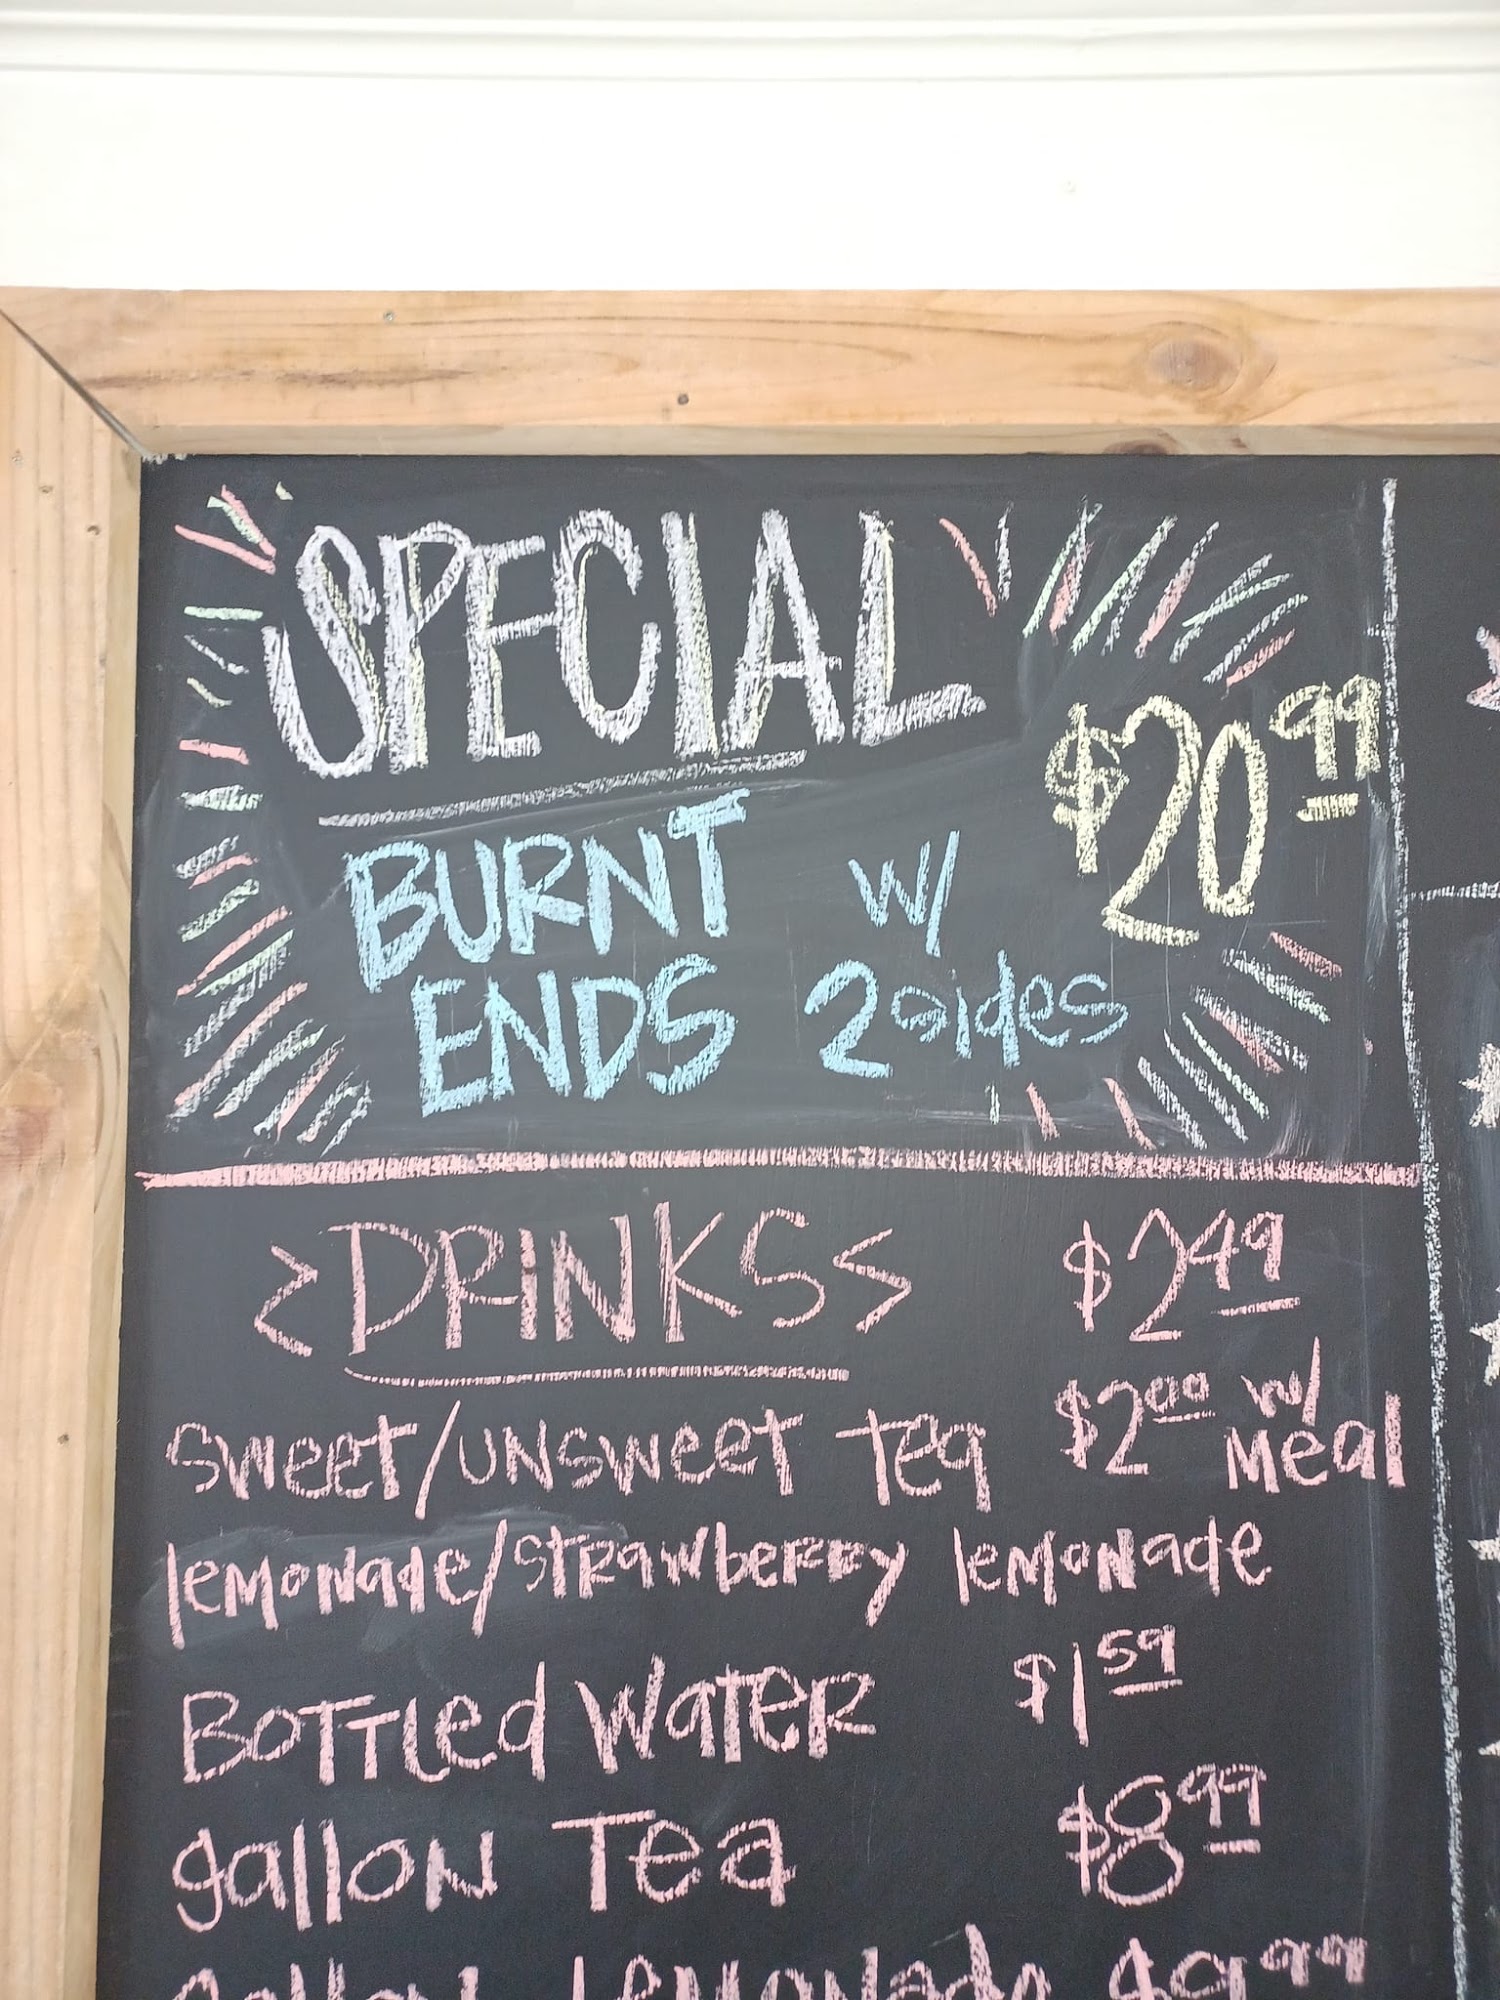 SPECIAL
$20.99
BURNT W/
ENDS 2 sides
>DRINKS< $2.49
sweet/unsweet Tea $2.00 w/ Meal
lemonade/strawberry lemonade
Bottled Water $1.59
gallon Tea $8.99
gallon lemonade $9.99